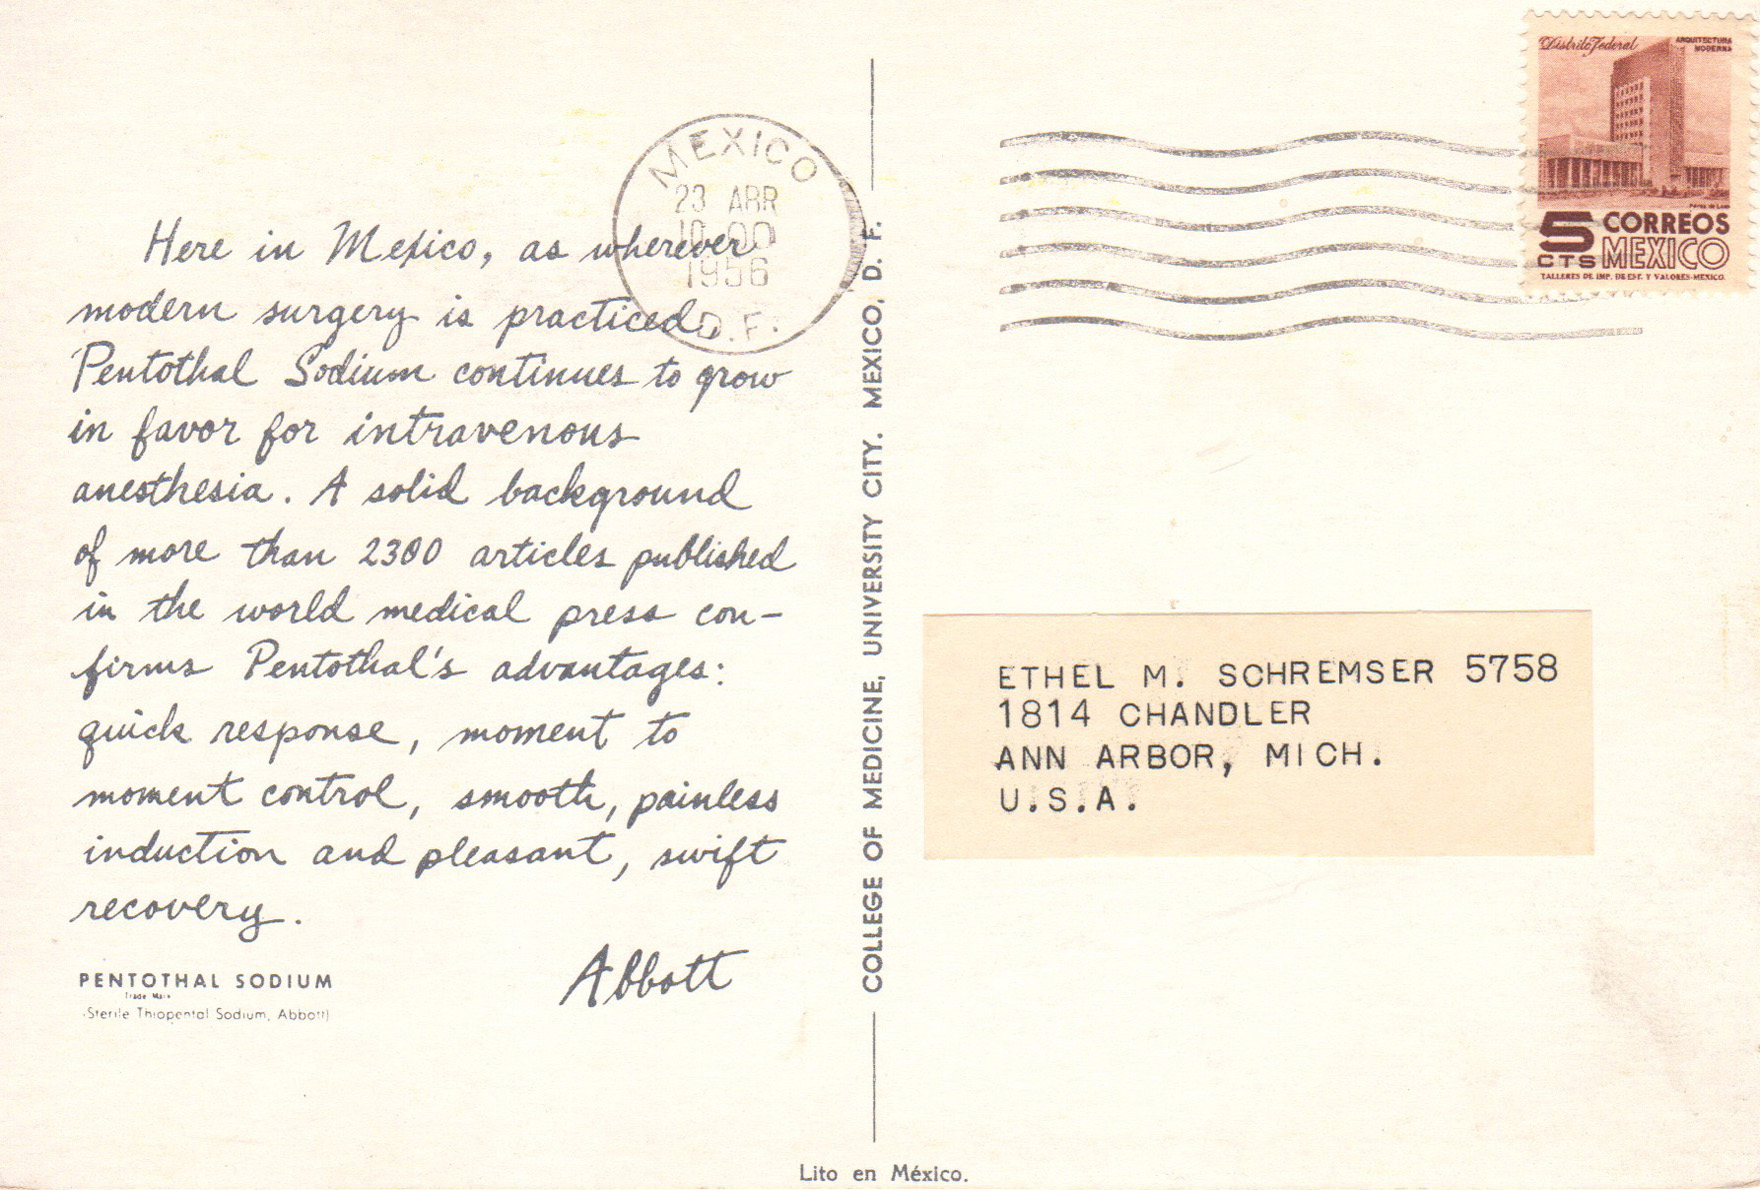 Here in Mexico, as wherever
modern surgery is practiced,
Pentothal Sodium continues to grow
in favor for intravenous
anesthesia. A solid background
of more than 2300 articles published
in the world medical press con-
firms Pentothal's advantages:
quick response, moment to
moment control, smooth, painless
induction and pleasant, swift
recovery.
Abbott
PENTOTHAL SODIUM
Trade Mark
(Sterile Thiopental Sodium, Abbott)
MEXICO
23 ABR
10:00
1956
D.F.
COLLEGE OF MEDICINE, UNIVERSITY CITY. MEXICO, D. F.
Distrito Federal
ARQUITECTURA
MODERNA
5 CTS
CORREOS
MEXICO
TALLERES DE IMP. DE EST. Y VALORES-MEXICO.
ETHEL M. SCHREMSER 5758
1814 CHANDLER
ANN ARBOR, MICH.
U.S.A.
Lito en México.